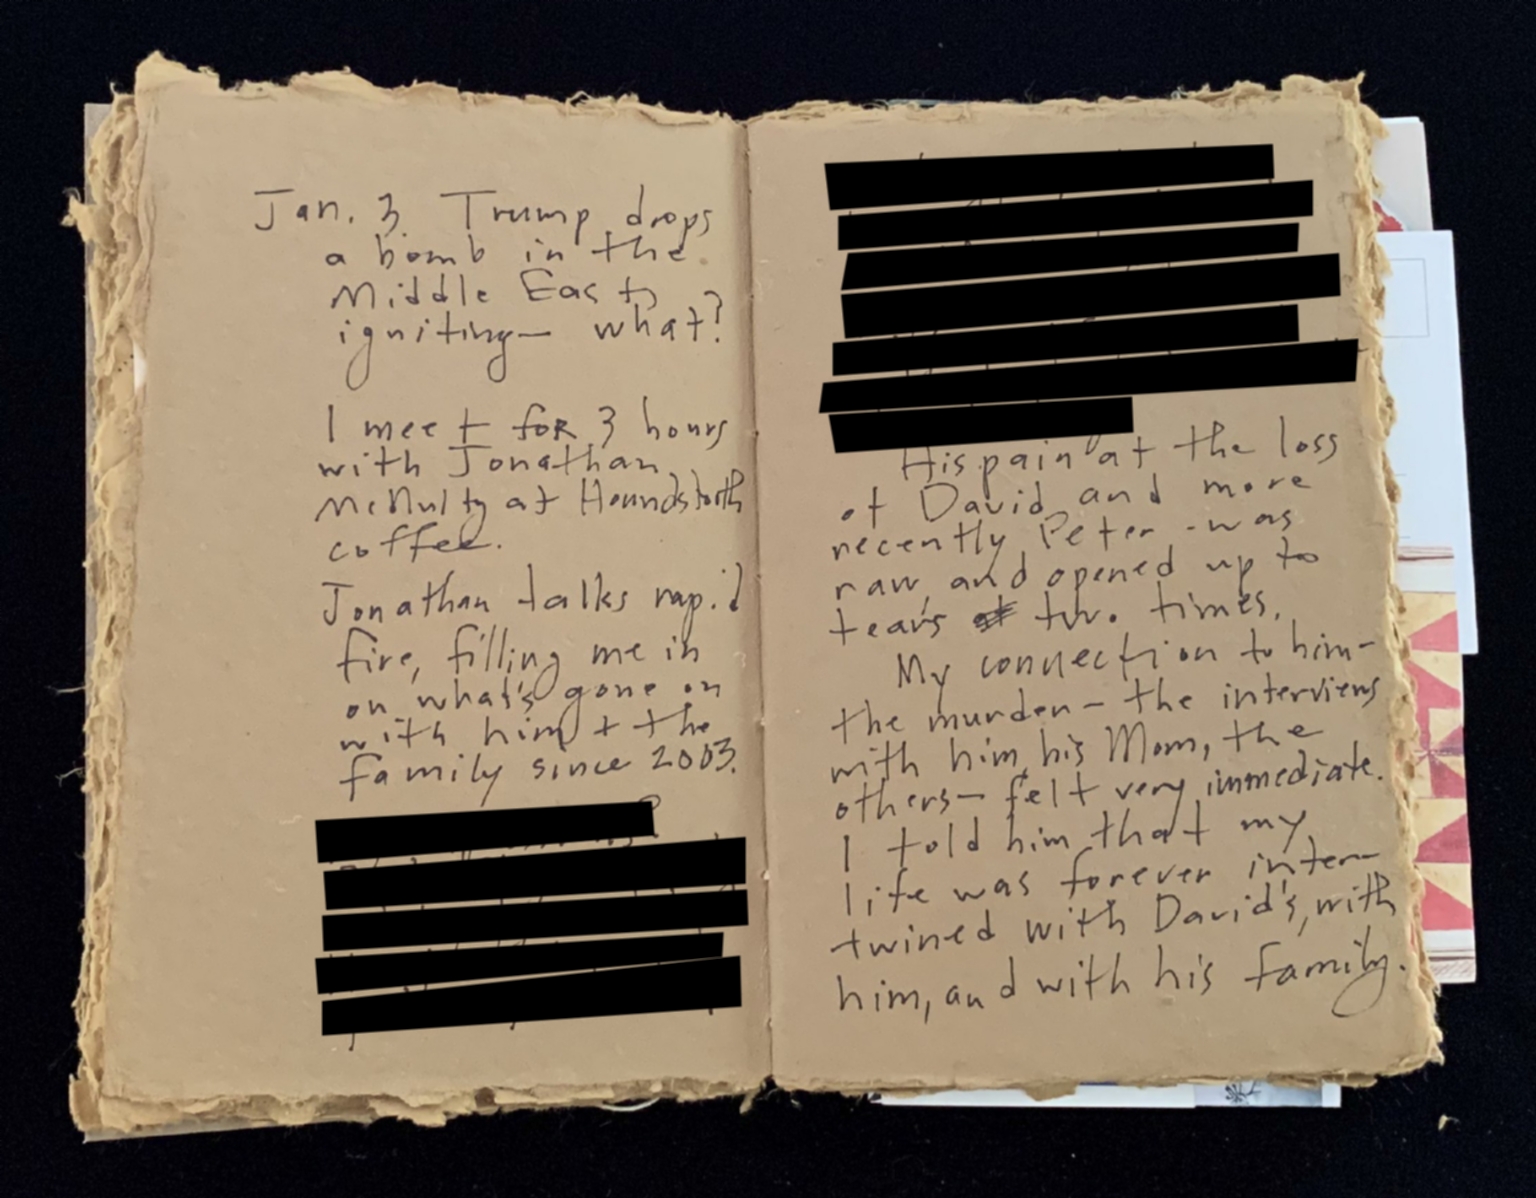 Jan. 3 Trump drops
a bomb in the
Middle East,
igniting— what?
I meet for 3 hours
with Jonathan
McNulty at Houndstooth
coffee.
Jonathan talks rapid
fire, filling me in
on what's gone on
with him + the
family since 2003.
His pain at the loss
of David, and more
recently Peter - was
raw, and opened up to
tears two times.
My connection to him-
the murder - the interviews
with him, his Mom, the
others— felt very immediate.
I told him that my
life was forever inter-
twined with David's, with
him, and with his family.